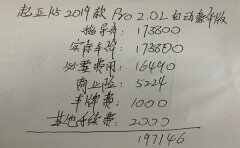 起亚K5 2019款 Pro 2.0L 自动豪华版
指导价：173800
实际车价：173800
必要费用：16490
商业险：5224
手牌费：1000
其他手续费：2000
197146